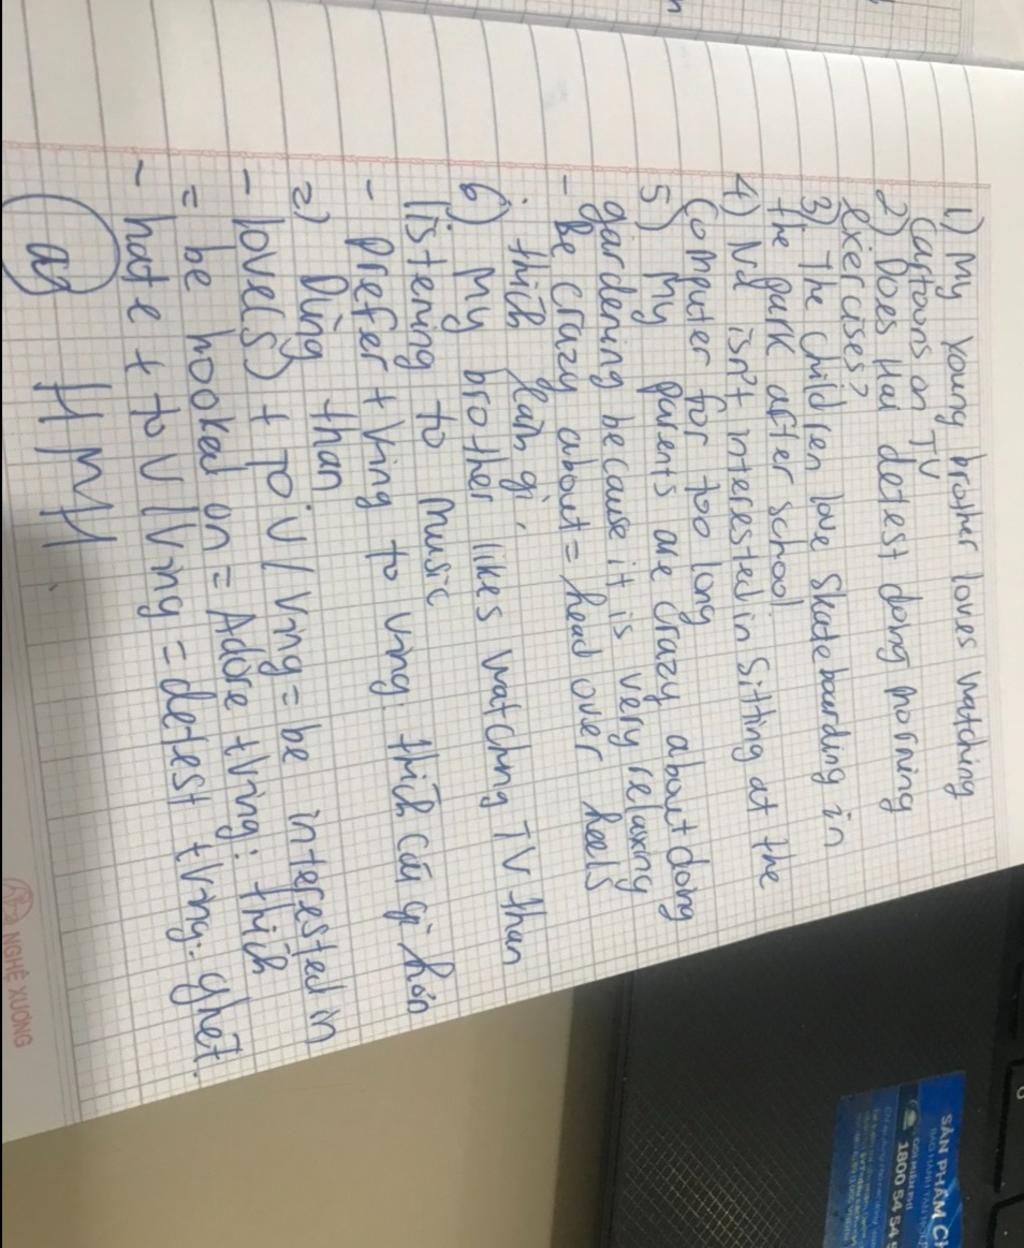 1) My young brother loves watching
cartoons on TV
2) Does Hai detest doing morning
exiercises?
3) The children love skateboarding in
the park after school
4) Nd isn't interested in sitting at the
computer for too long
5) My parents are crazy about doing
gardening because it is very relaxing
- Be crazy about = head over heels
: thích làm gì,
6) My brother likes watchng TV than
listening to music
- prefer + Ving to ving: thích cái gì hơn
2) Dùng than
- love(s) + to V / Ving = be interested in
= be hooked on = Adore + Ving: thích
- hate + to V / Ving = detest + Ving: ghét.
NGHÊ XƯƠNG
SẢN PHẨM CH
1800 54 54